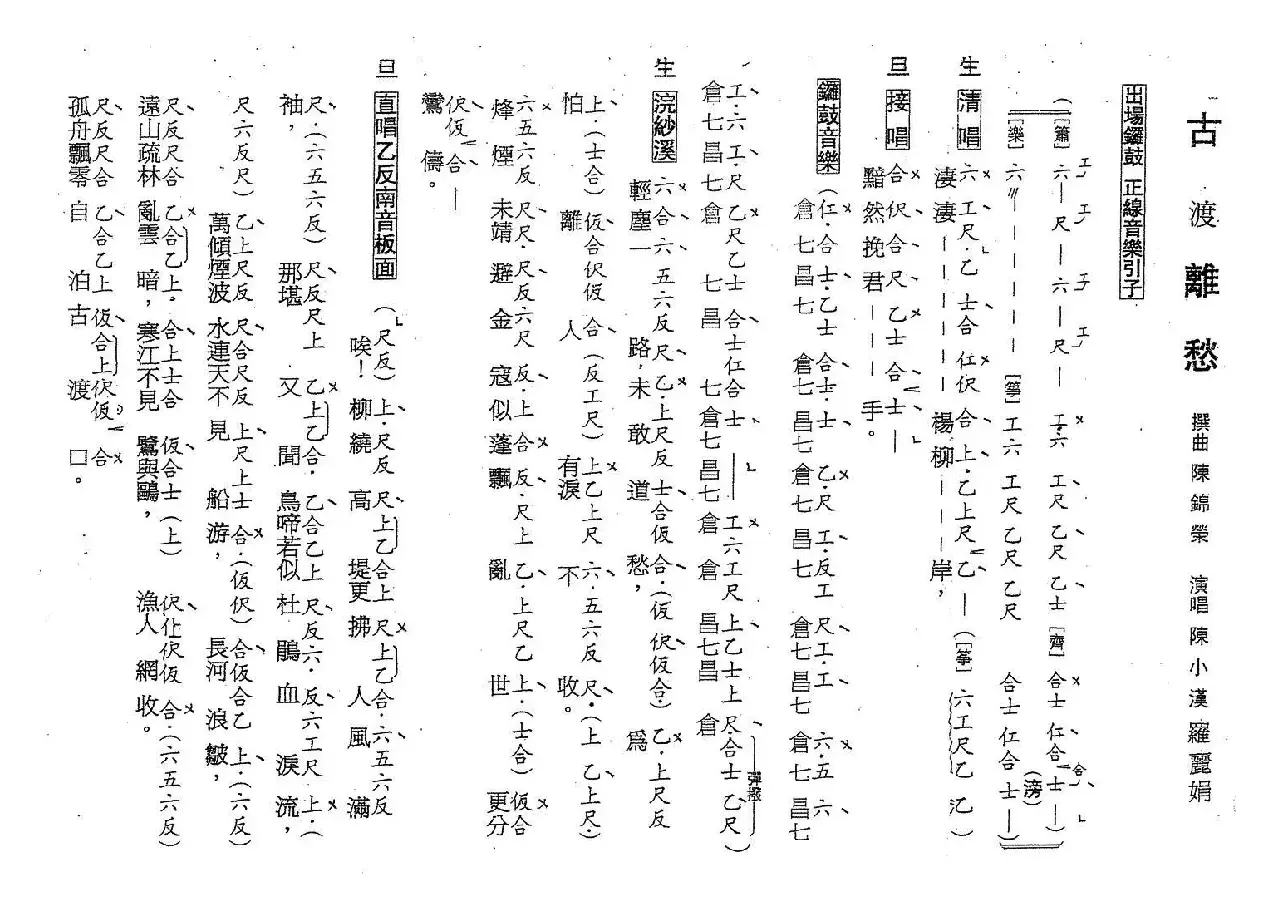 古渡離愁 撰曲陳錦榮 演唱陳小漢羅麗娟
出場鑼鼓 正線音樂引子
工 工 工 工
（［簫］六—尺—六—尺—工·六 工尺 乙尺 乙士［齊］合士 仁合 士—）
合
（滂）
［樂］六 —————［箏］工六 工尺 乙尺 乙尺 合士 仁合 士—）
生 清唱 六工尺·乙士合仁伬合上·乙上尺乙——（［箏］六工尺乙 ）
淒淒—————楊柳———岸，
旦 接唱 合伬合尺乙士合士—
黯然挽君———手。
鑼鼓音樂（仁·合士·乙士合士·士乙·尺工·反工尺工·工六·五六
倉七昌七倉七昌七倉七昌七倉七昌七倉七昌七
工·六工·尺乙尺乙士合士仁合士—工六工尺上乙士上尺·合士乙尺）
彈撥
倉七昌七倉七昌七倉七昌七倉倉昌七昌倉
生 浣紗溪 六合六五六反尺乙·上尺反士合仮合·（仮伬仮合·）乙·上尺反
輕塵一路，未敢道愁，為
上·（士合）仮合伬仮合（反工尺）上乙上尺六·五六反尺·（上乙上尺·）
怕離人有淚不收。
六五六反尺尺·反六尺反·上合反·尺上乙·上尺乙上·（士合）仮合
烽煙未靖避金寇似蓬飄亂世更分
伬仮合—
鸞儔。
旦 直唱乙反南音板面（尺反）上·尺反尺上乙合上尺上乙合·六五六反
唉！柳繞高堤更拂人風滿
尺·（六五六反）尺反尺上乙上乙合·乙合乙上尺反六·反六工尺上·（
袖，那堪又聞鳥啼若似杜鵑血淚流，
尺六反尺）乙上尺反尺合尺反上尺上士合·（仮伬）合仮合乙上·（六反）
萬傾煙波水連天不見船游，長河浪皺，
尺反尺合乙合乙上·合上士合仮合士（上）伬仩伬仮合·（六五六反）
遠山疏林亂雲暗，寒江不見鷺與鷗，漁人網收。
尺反尺合乙合乙上仮合上伬仮合
孤舟飄零自泊古渡口。